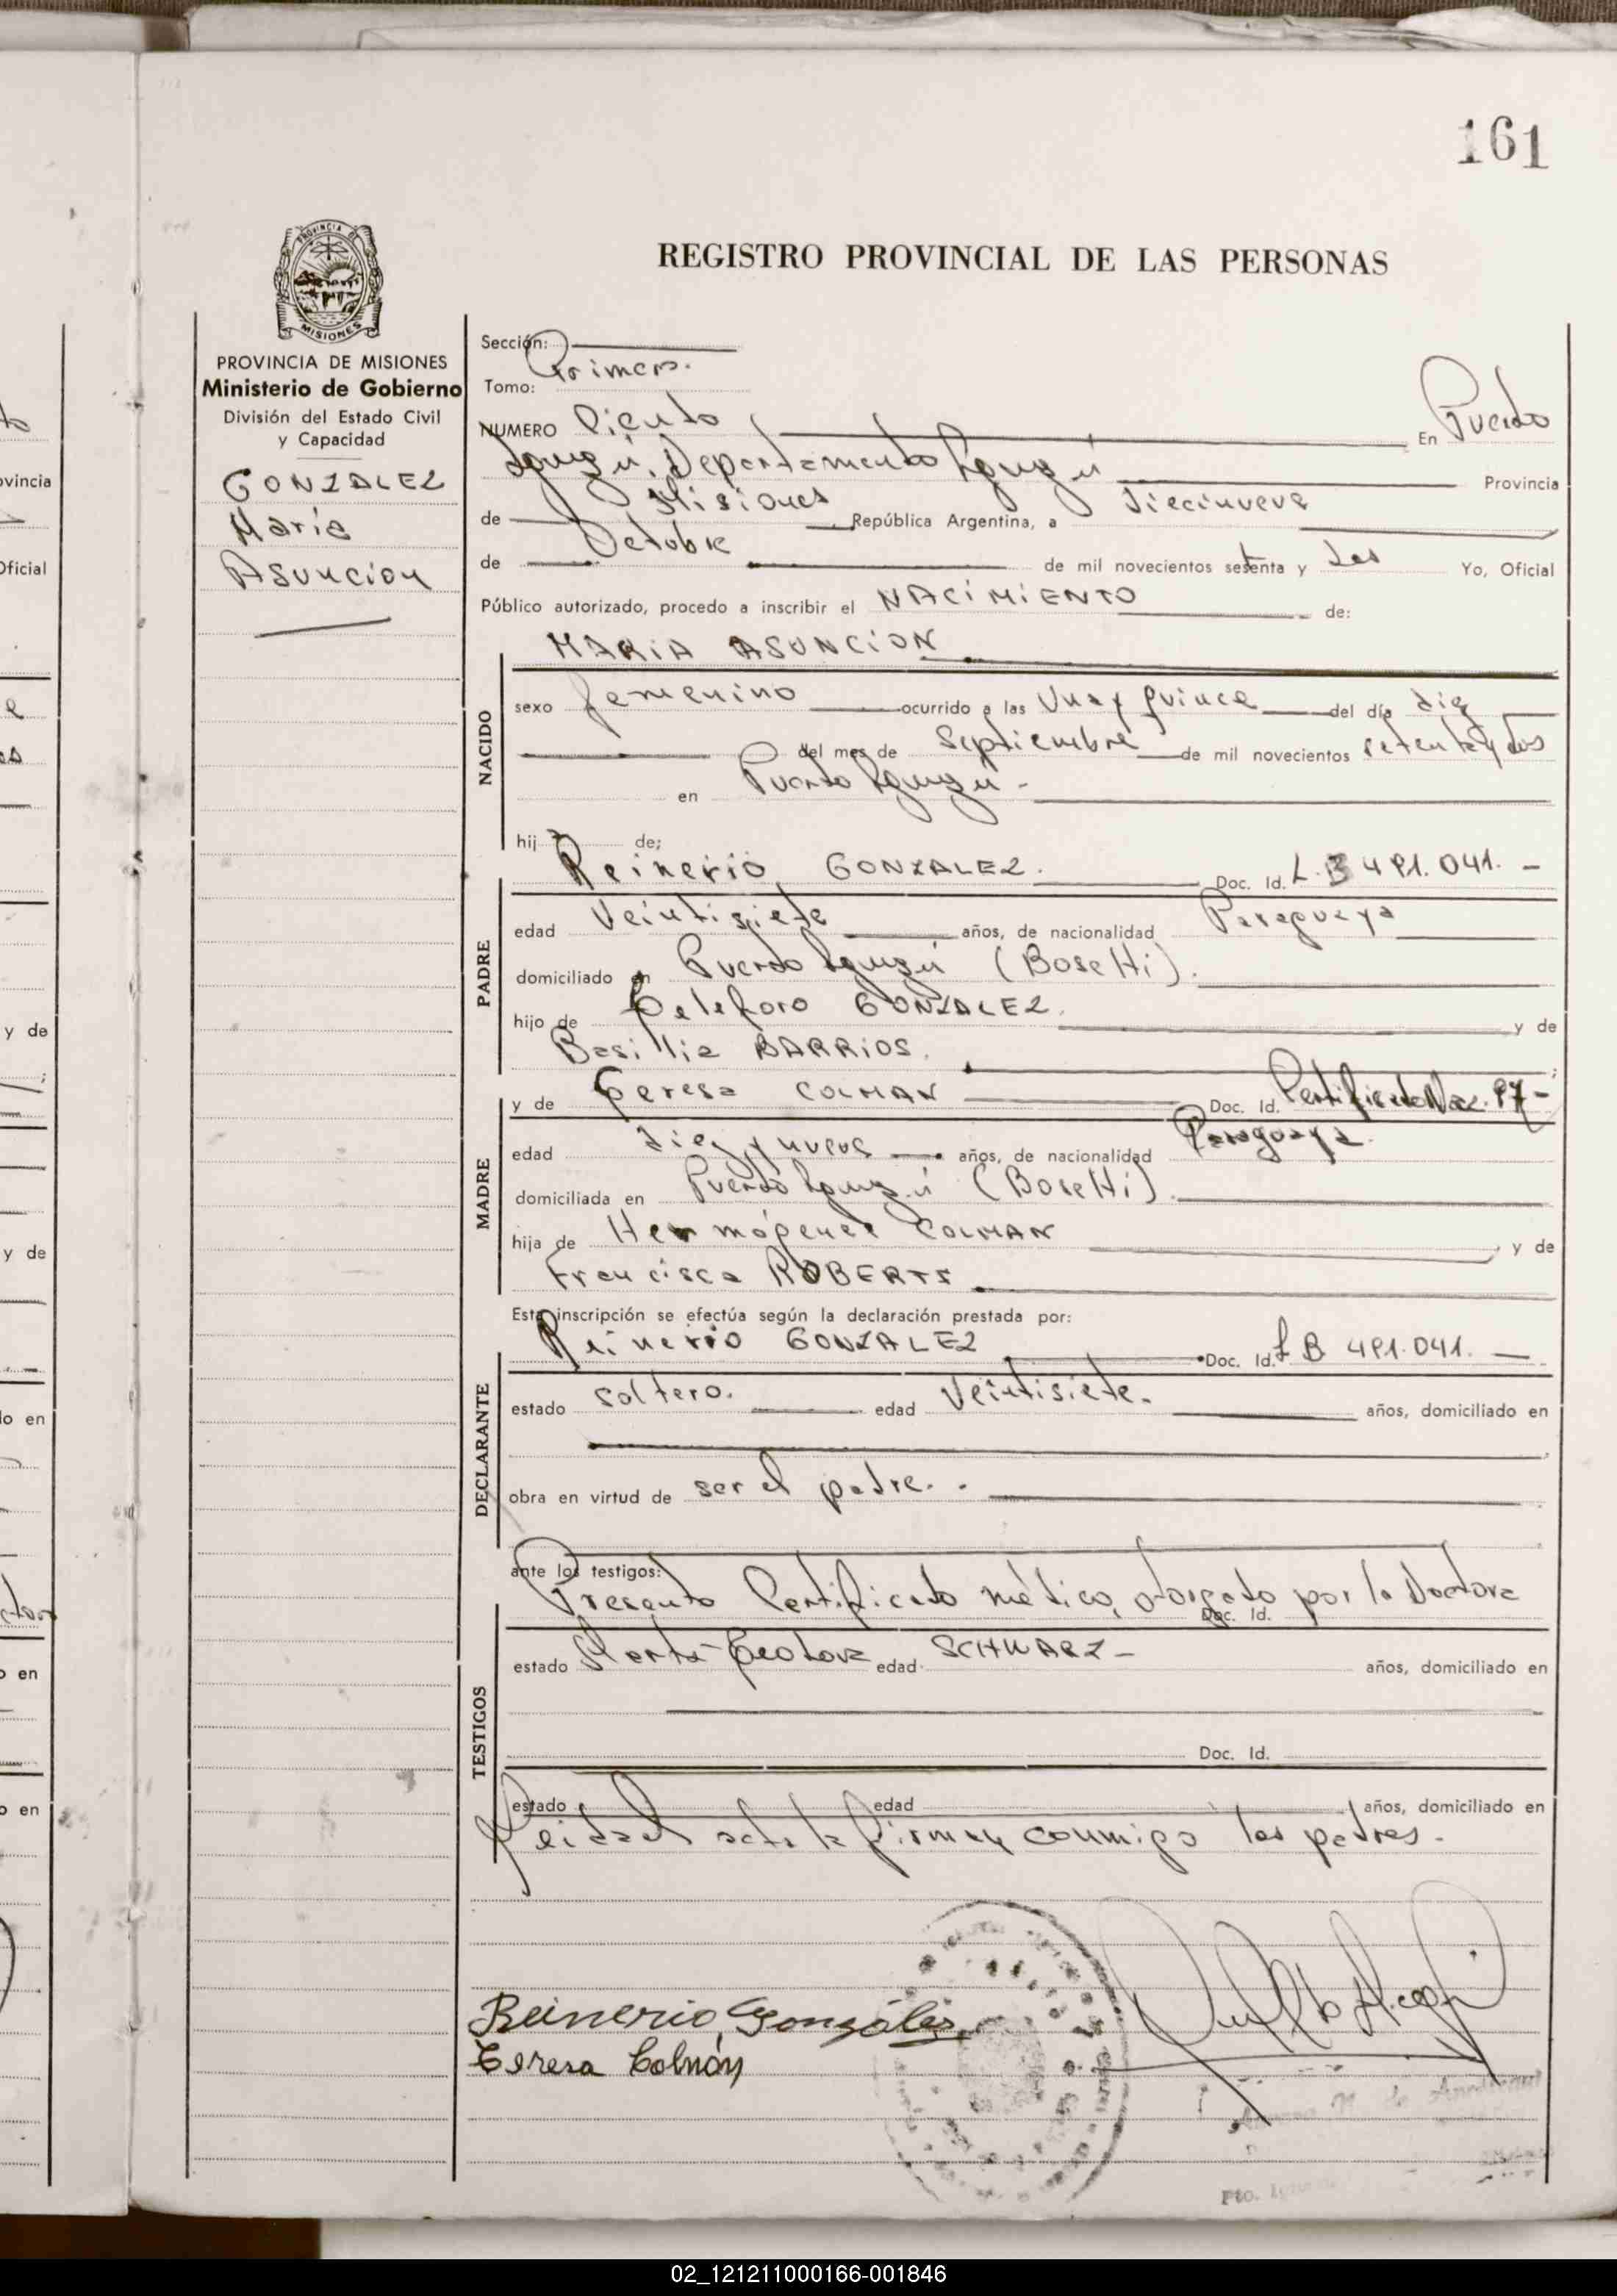 161
REGISTRO PROVINCIAL DE LAS PERSONAS
PROVINCIA DE
MISIONES
PROVINCIA DE MISIONES
Ministerio de Gobierno
División del Estado Civil
y Capacidad
GONZALEZ
María
Asuncion
Sección:
Tomo: Primero.
NUMERO Ciento En Puerto
Iguazú, Departamento Iguazú Provincia
de Misiones República Argentina, a diecinueve
de Octubre de mil novecientos setenta y dos Yo, Oficial
Público autorizado, procedo a inscribir el NACIMIENTO de:
MARIA ASUNCION
NACIDO
sexo femenino ocurrido a las Una y quince del día diez
del mes de Septiembre de mil novecientos setenta y dos
en Puerto Iguazú -
hija de;
Reinerio GONZALEZ. Doc. Id. L.B 491.041. -
PADRE
edad Veintisiete años, de nacionalidad Paraguaya
domiciliado en Puerto Iguazú (Bosetti).
hijo de Teleforo GONZALEZ. y de
Basilia BARRIOS. ;
y de Teresa COLMAN Doc. Id. Certificado Nac. 97 -
MADRE
edad diez y nueve años, de nacionalidad Paraguaya.
domiciliada en Puerto Iguazú (Bosetti).
hija de Hermógenes COLMAN y de
Francisca ROBERTS
Esta inscripción se efectúa según la declaración prestada por:
Reinerio GONZALEZ Doc. Id. L B 491.041. -
DECLARANTE
estado soltero. edad Veintisiete. años, domiciliado en
obra en virtud de ser el padre. .
ante los testigos:
Presento Certificado médico, otorgado por la Doctora
Doc. Id.
TESTIGOS
estado Marta Teodora edad SCHWARZ - años, domiciliado en
Doc. Id.
estado edad años, domiciliado en
Leida el acta la firman conmigo los padres.
Reinerio Gonzáles
Teresa Colmán
Pto.
02_121211000166-001846